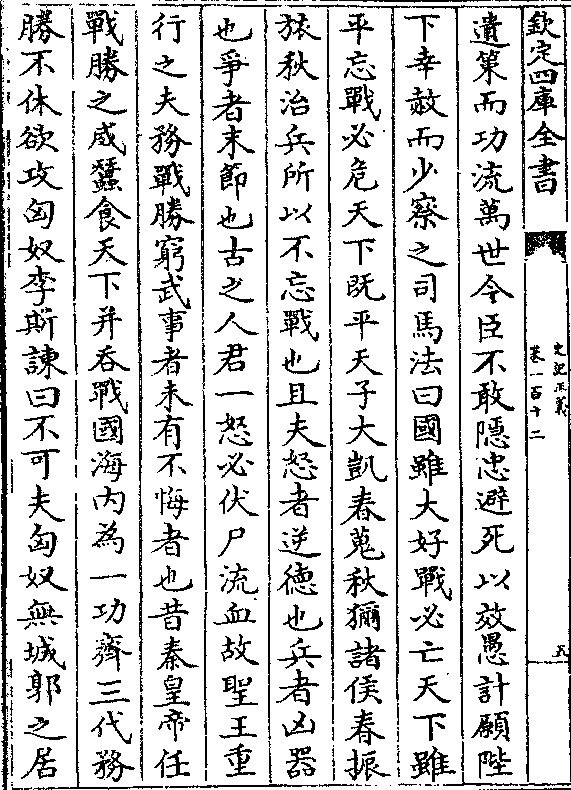 欽定四庫全書
史記正義
卷一百十二
五
遺策而功流萬世今臣不敢隱忠避死以效愚計願陛
下幸赦而少察之司馬法曰國雖大好戰必亡天下雖
平忘戰必危天下既平天子大凱春蒐秋獮諸侯春振
旅秋治兵所以不忘戰也且夫怒者逆德也兵者凶器
也爭者末節也古之人君一怒必伏尸流血故聖王重
行之夫務戰勝窮武事者未有不悔者也昔秦皇帝任
戰勝之威蠶食天下并吞戰國海内為一功齊三代務
勝不休欲攻匈奴李斯諫曰不可夫匈奴無城郭之居